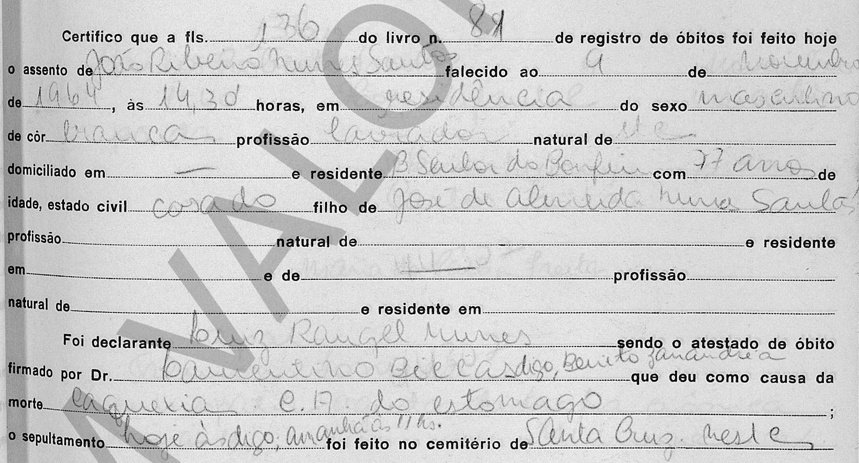 Certifico que a fls. 136 do livro n. 81 de registro de óbitos foi feito hoje
o assento de João Ribeiro Nunes Santos falecido ao 9 de novembro
de 1964, às 14,30 horas, em residência do sexo masculino
de côr branca profissão lavrador natural de
domiciliado em — e residente B Senhor do Bonfim com 77 anos de
idade, estado civil casado filho de José de Almeida Nunes Santos
profissão natural de e residente
em e de profissão
natural de e residente em
Foi declarante Cruz Rangel Nunes sendo o atestado de óbito
firmado por Dr. digo, Benito Zanandréa que deu como causa da
morte caquexia C.A. do estomago ;
o sepultamento hoje às digo, amanhã às 11 hs. foi feito no cemitério de Santa Cruz neste
VALO